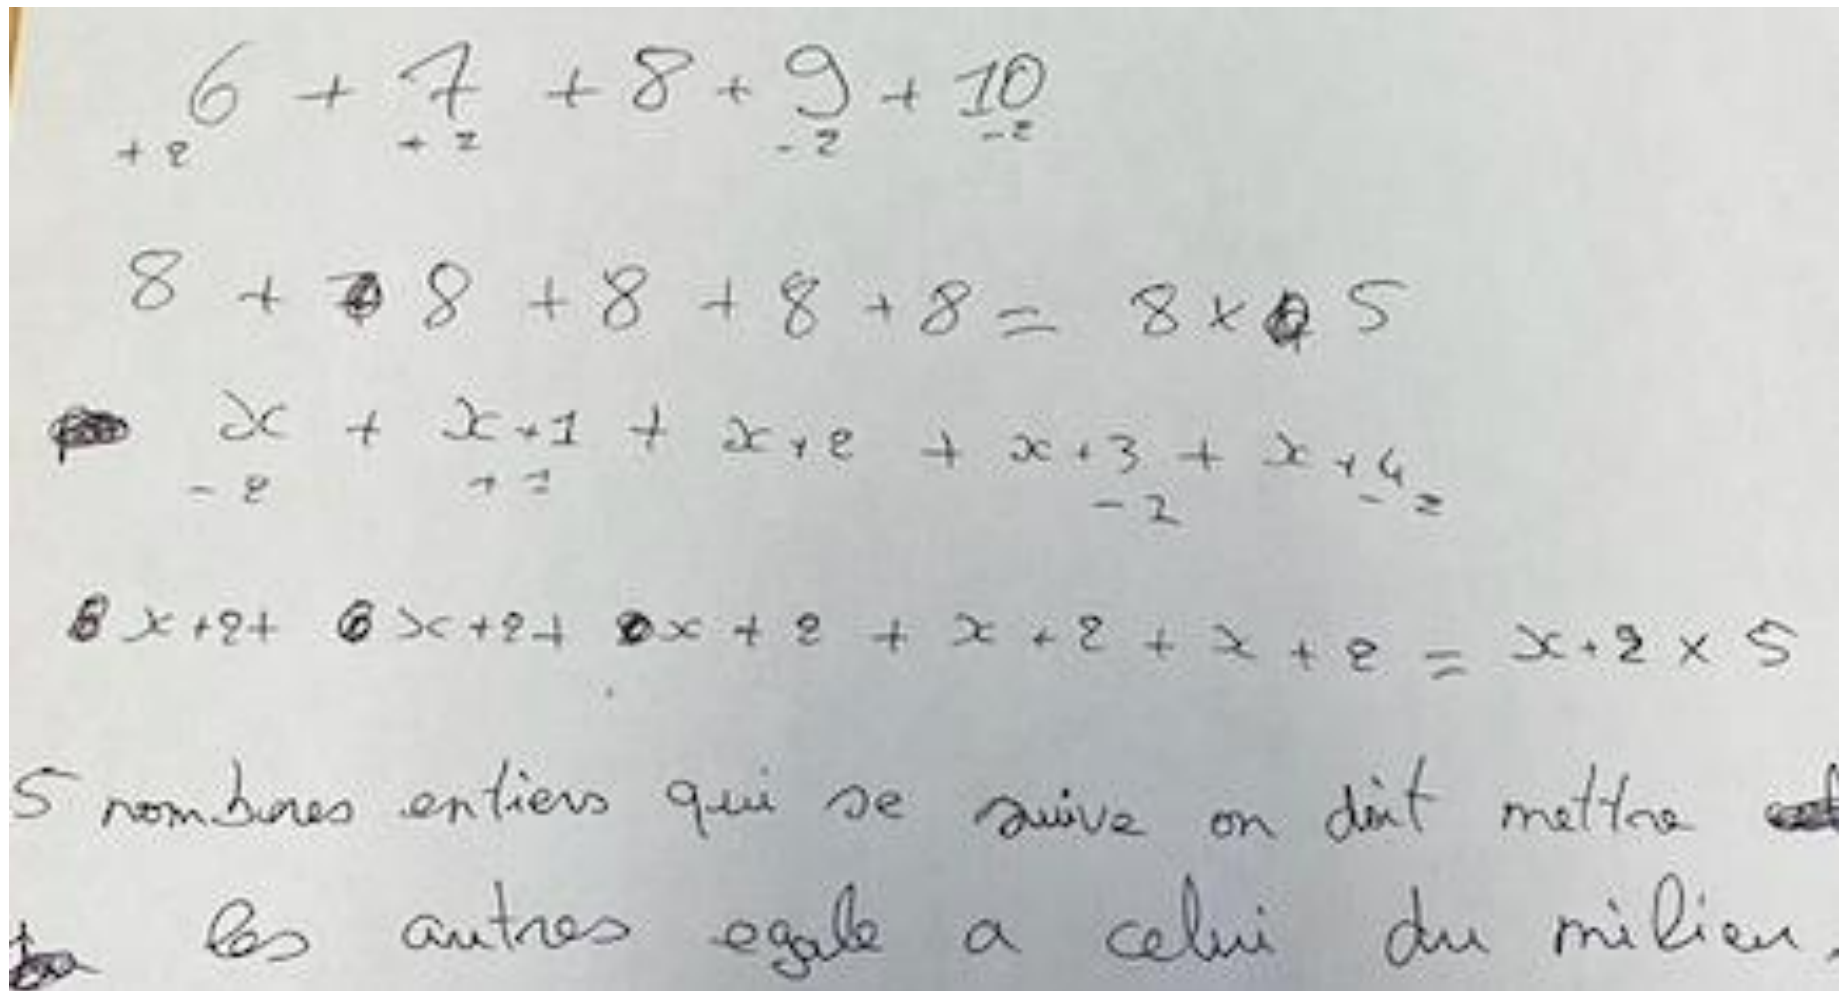 6 + 7 + 8 + 9 + 10
+2 +1 -1 -2
8 + 8 + 8 + 8 + 8 = 8 × 5
x + x+1 + x+2 + x+3 + x+4
-2 +1 -1 -2
x+2+ x+2+ x+2 + x+2 + x+2 = x+2 × 5
5 nombres entiers qui se suive on doit mettre
les autres egale a celui du milieu.